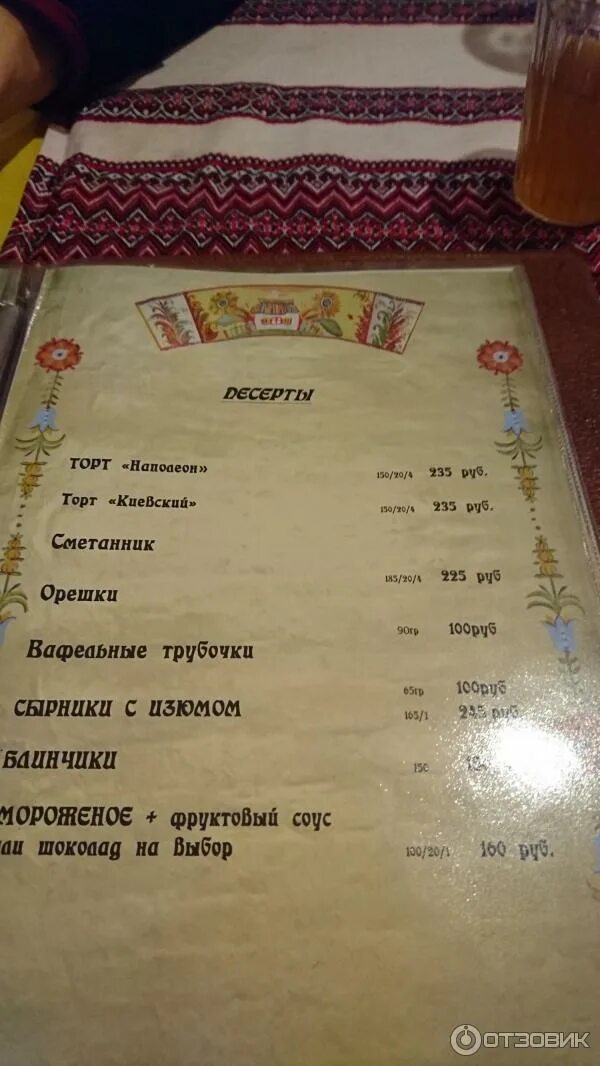 ДЕСЕРТЫ
ТОРТ «Наполеон» 150/20/4 235 руб.
Торт «Киевский» 150/20/4 235 руб.
Сметанник 185/20/4 225 руб
Орешки 90гр 100руб
Вафельные трубочки 65гр 100руб
СЫРНИКИ С ИЗЮМОМ 165/1 руб.
БЛИНЧИКИ 150
МОРОЖЕНОЕ + фруктовый соус
или шоколад на выбор 130/20/1 160 руб.
ОТЗОВИК